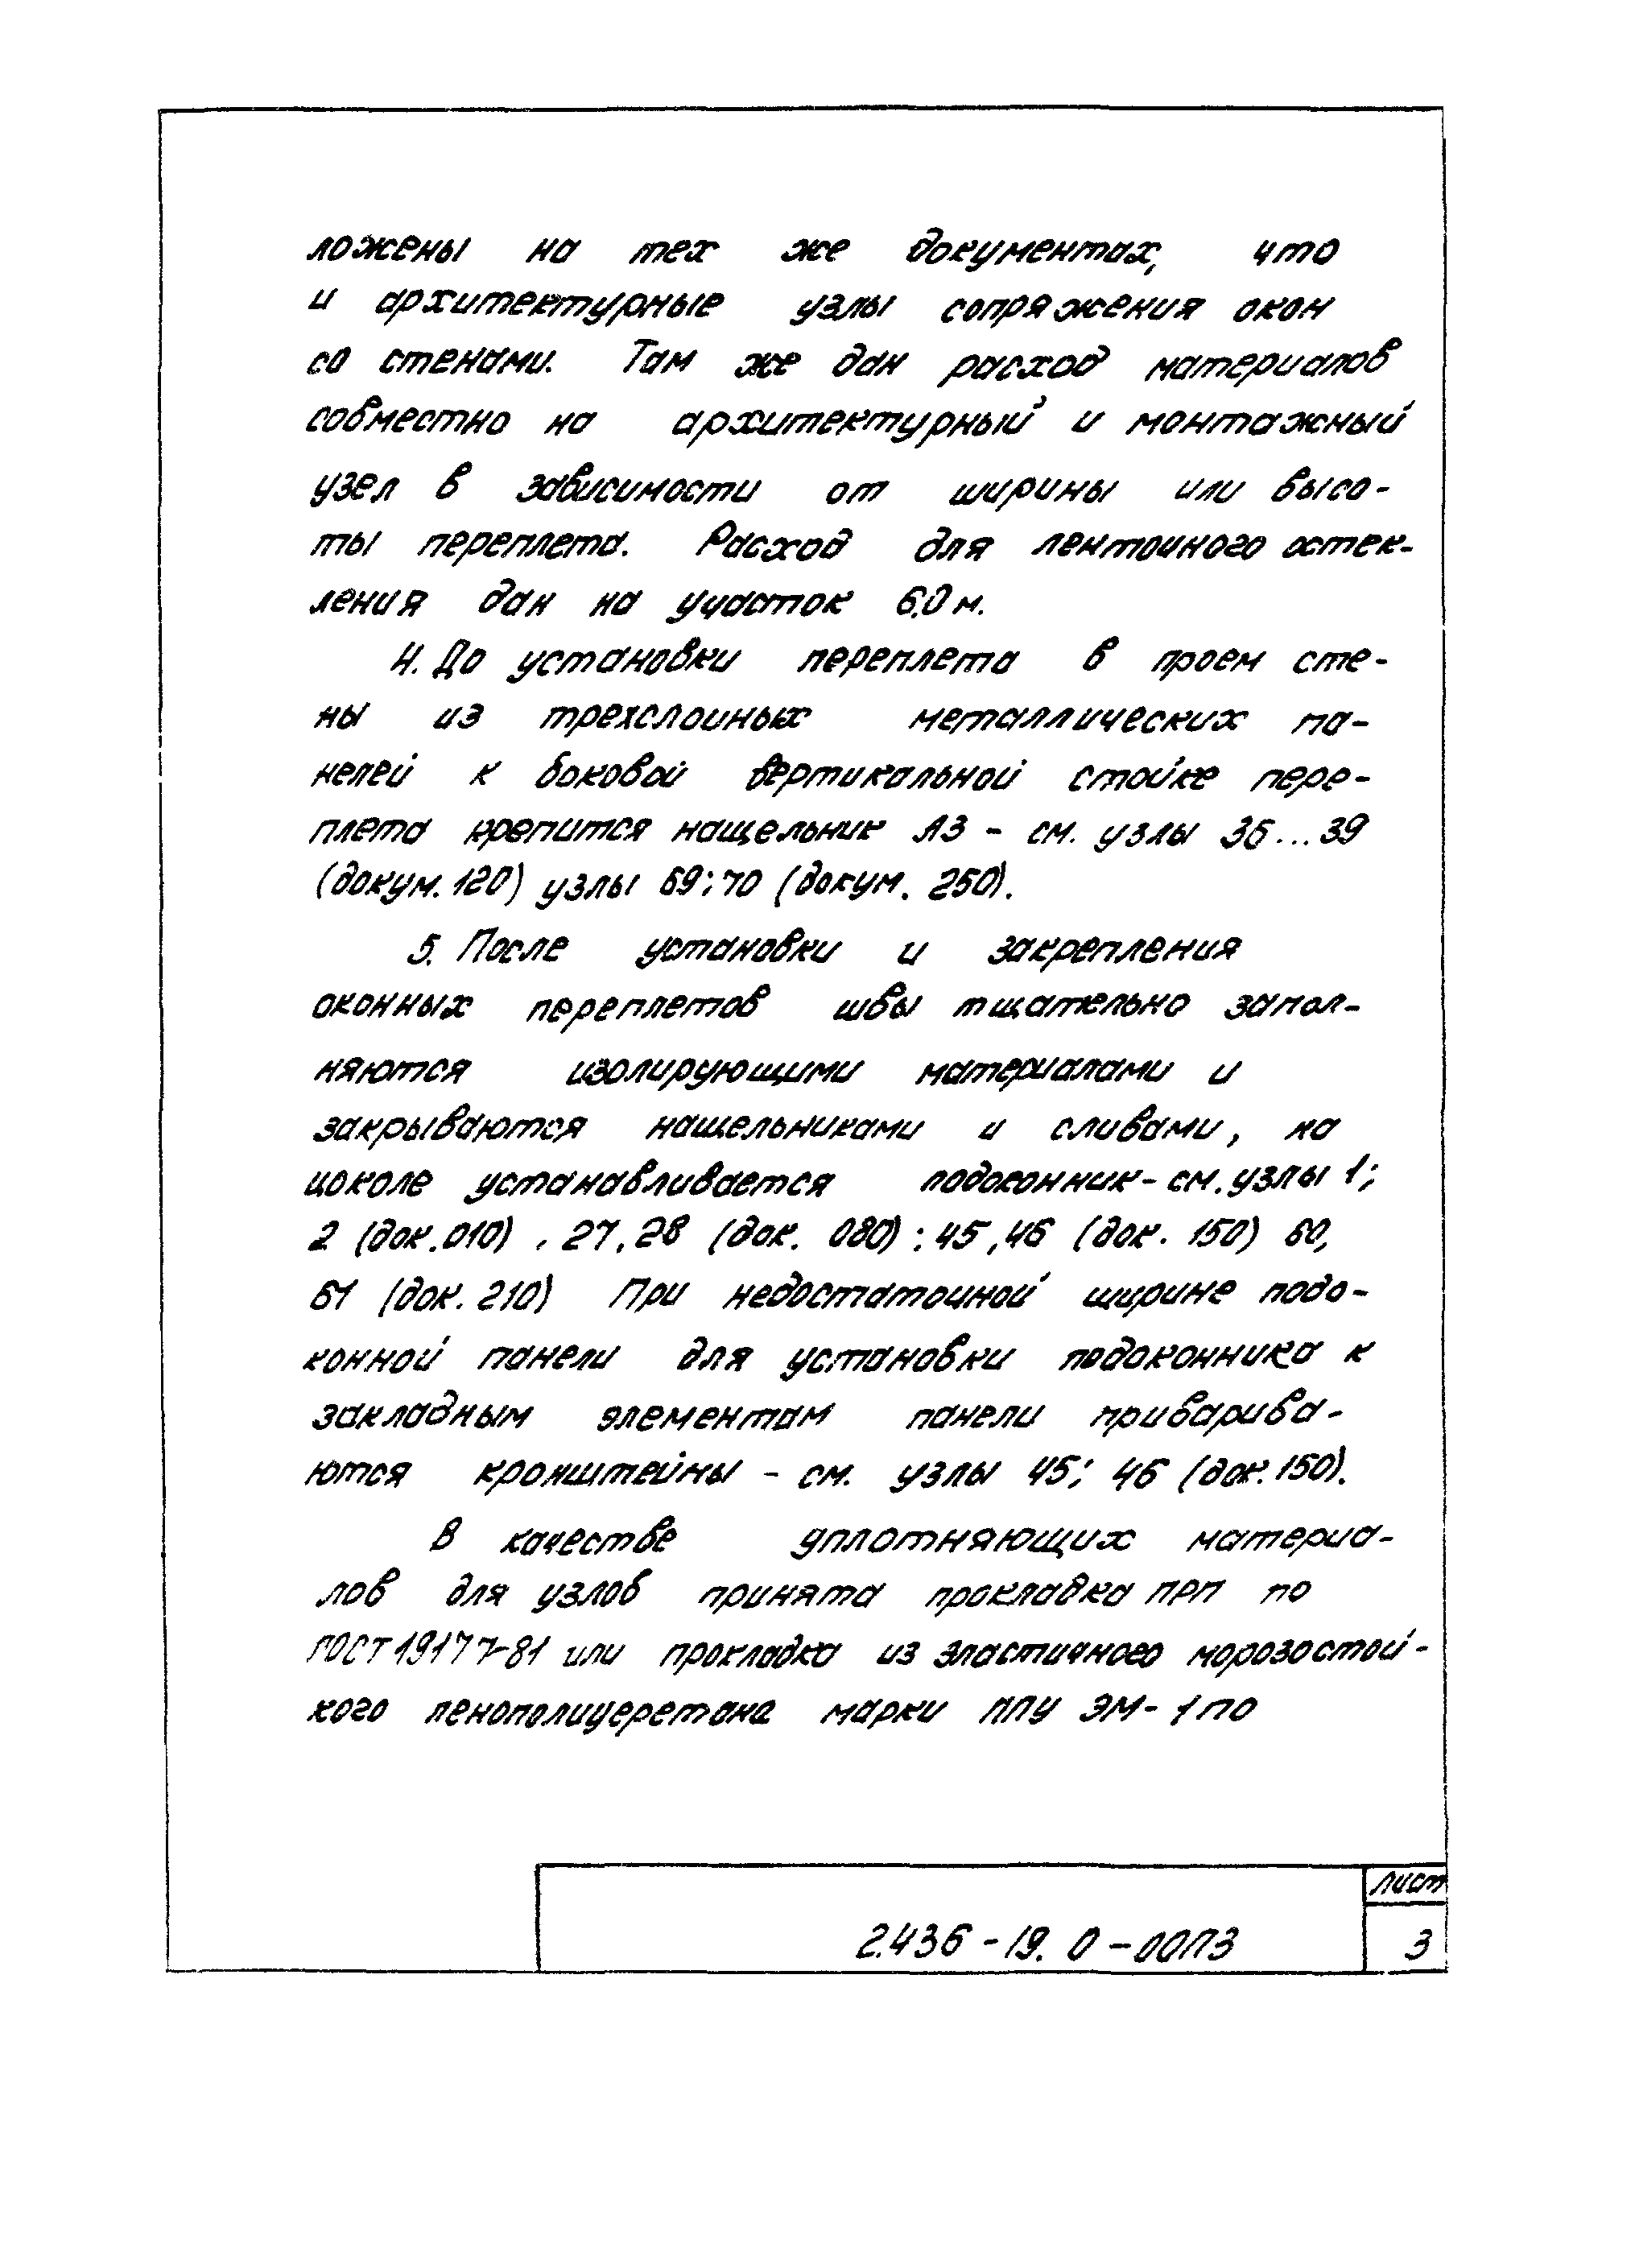 ложены на тех же документах, что
и архитектурные узлы сопряжения окон
со стенами. Там же дан расход материалов
совместно на архитектурный и монтажный
узел в зависимости от ширины или высо-
ты переплета. Расход для ленточного остек-
ления дан на участок 6.0 м.
4. До установки переплета в проем сте-
ны из трехслойных металлических па-
нелей к боковой вертикальной стойке пере-
плета крепится нащельник Л3 - см. узлы 36...39
(докум. 120) узлы 69; 70 (докум. 250).
5. После установки и закрепления
оконных переплетов швы тщательно запол-
няются изолирующими материалами и
закрываются нащельниками и сливами, на
цоколе устанавливается подоконник - см. узлы 1;
2 (док. 010), 27, 28 (док. 080); 45, 46 (док. 150) 60,
61 (док. 210) При недостаточной ширине подо-
конной панели для установки подоконника к
закладным элементам панели приварива-
ются кронштейны - см. узлы 45; 46 (док. 150).
В качестве уплотняющих материа-
лов для узлов принята прокладка ПРП по
ГОСТ 19177-81 или прокладка из эластичного морозостой-
кого пенополиуеретана марки ППУ ЭМ-1 по
лист
2.436-19.0-00ПЗ 3